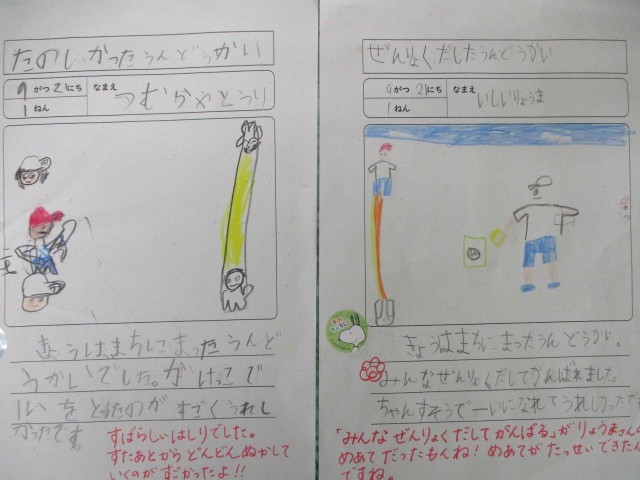 たのしかったうんどうかい
9がつ21にち
1ねん
なまえ
つむらやとうり
きょうは、まちにまったうんど
うかいでした。かけっこで
1いをとったのがすごくうれし
かったです。
すばらしいはしりでした。
すたあとからどんどんぬかして
いくのがすごかったよ!!
ぜんりょくだしたうんどうかい
9がつ21にち
1ねん
なまえ
いしいりょうま
きょうはまちにまったうんどうかい。
みんなぜんりょくだしてがんばれました。
ちゃんすそうで一いになれてうれしかったです
「みんなぜんりょくだしてがんばる」がりょうまさんの
めあてだったもんね!めあてがたっせいできたん
ですね。